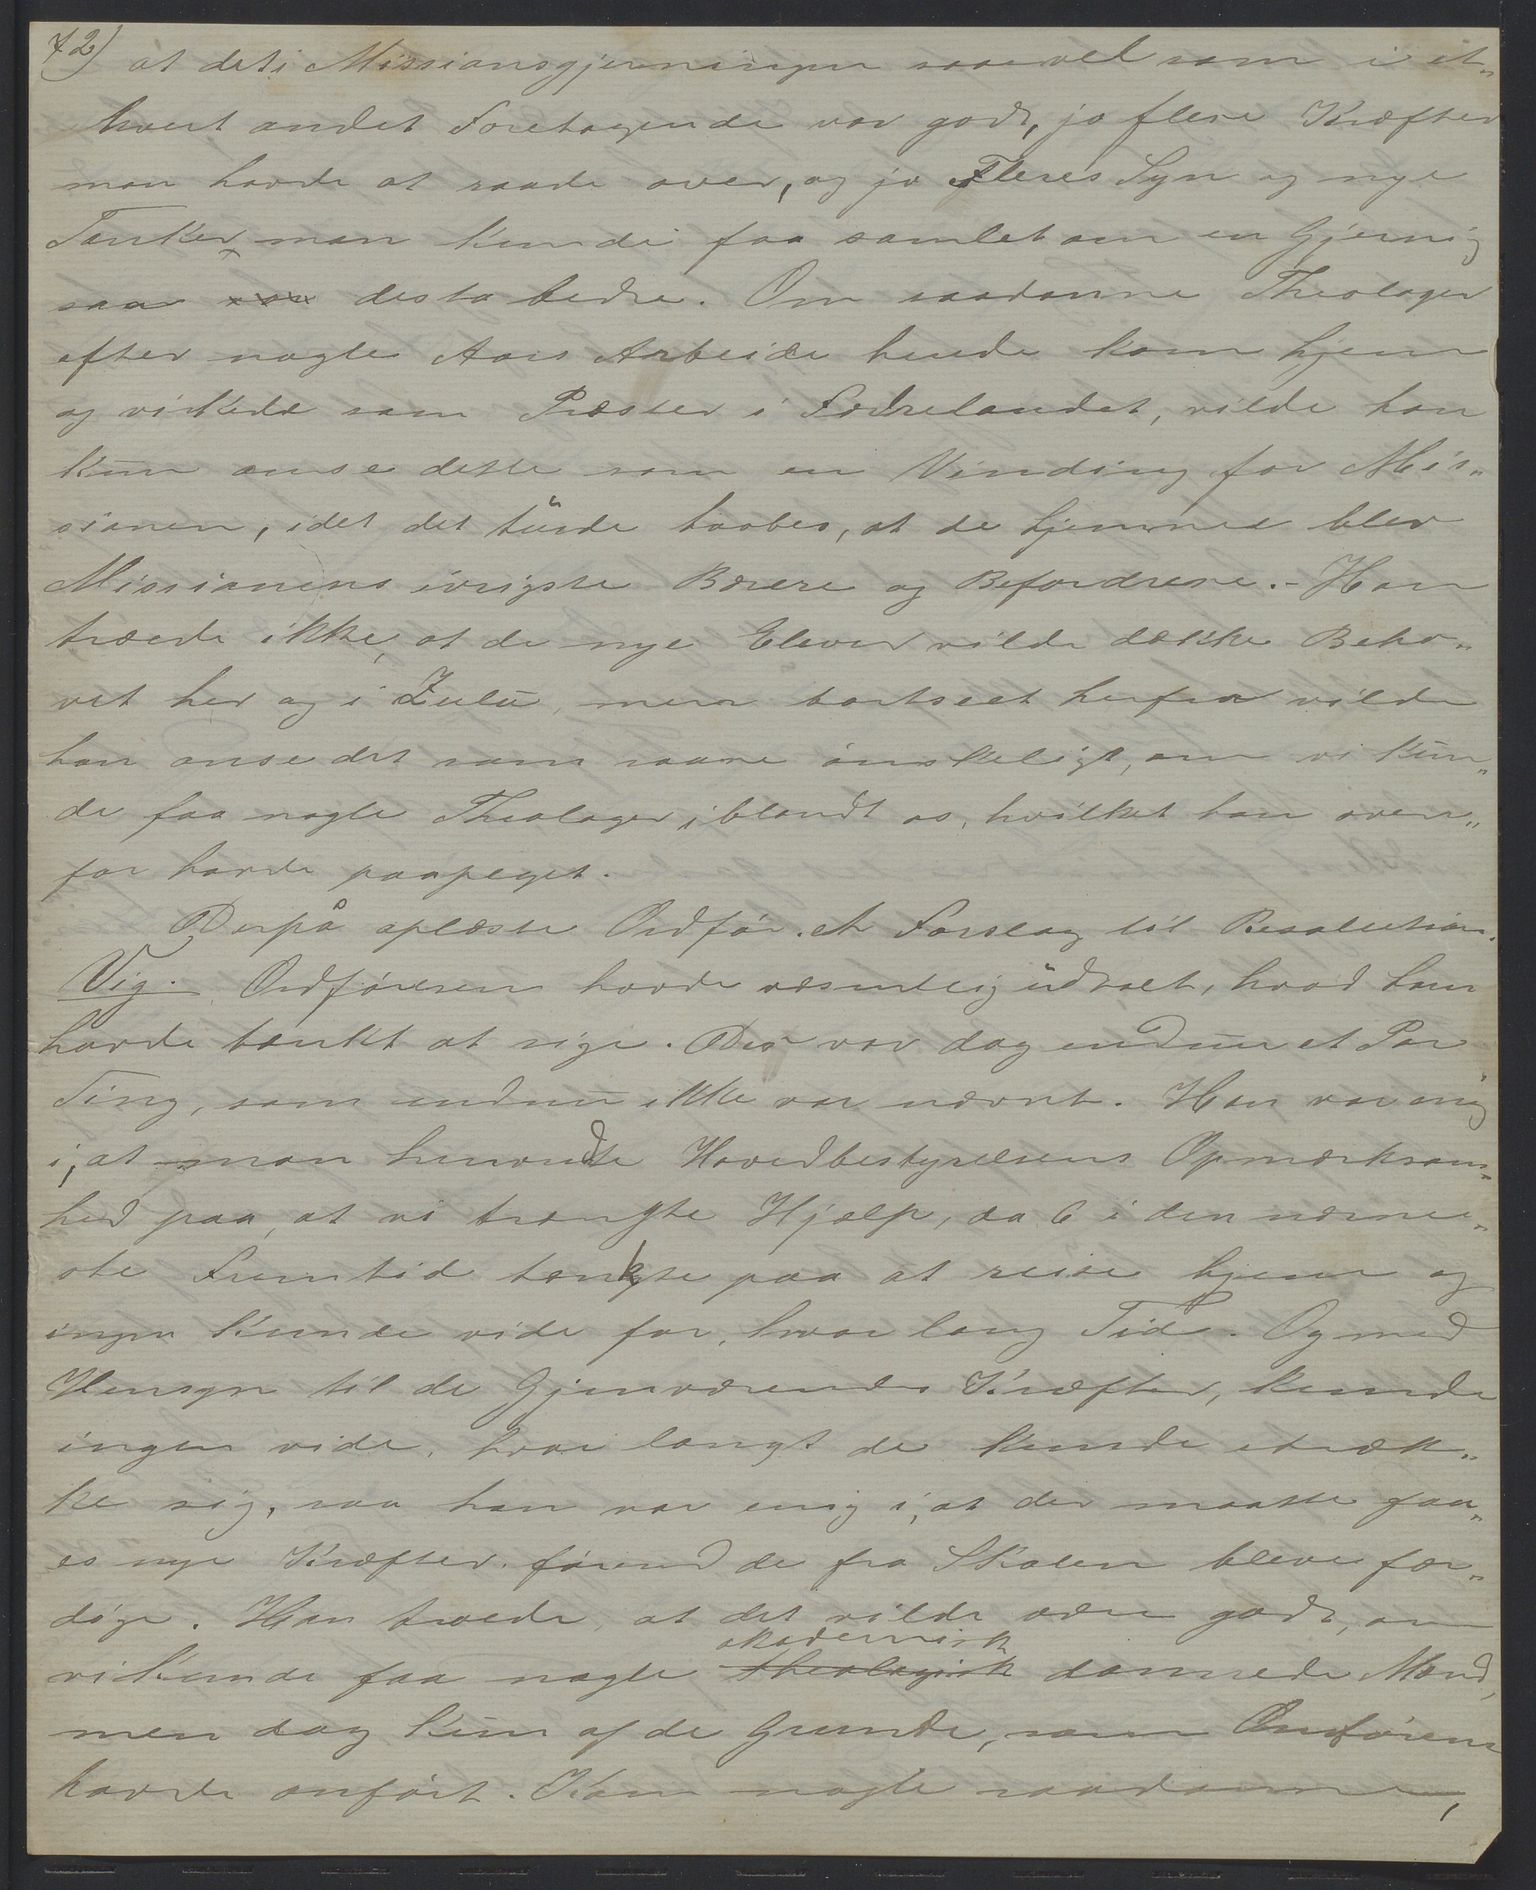 72) at det i Missionsgjerningen saavel som i et„
hvert andet Foretagende var godt, jo flere Kræfter
man havde at raade over, og jo Fleres Syn og nye
Tanker man kunde faa samlet om en Gjerning
saa var desto bedre. Om saadanne Theologer
efter nogle Aars Arbeide herude kom hjem
og virkede som Præster i Fædrelandet, vilde han
kun anse dette som en Vinding for Mis„
sionen, idet det turde haabes, at de hjemme blev
Missionens ivrigste Bærere og Befordrere. - Han
troede ikke, at de nye Elever vilde dække Beho„
vet her og i Zulu, men bortseet herfra vilde
han anse det som saare ønskeligt, om vi kun„
de faa nogle Theologer iblandt os, hvilket han oven„
for havde paapeget.
Derpå oplæste Ordfør. et Forslag til Resolution.
Vig. Ordføreren havde væsentlig udtalt, hvad han
havde tænkt at sige. Der var dog endnu et Par
Ting, som endnu ikke var nævnt. Han var enig
i, at man henvendte Hovedbestyrelsens Opmærksom„
hed paa, at vi trængte Hjælp, da 6 i den nærme„
ste Fremtid tænkte paa at reise hjem og
ingen kunde vide for, hvor lang Tid. Og med
Hensyn til de Gjenværendes Kræfter, kunde
ingen vide, hvor langt de kunde stræk„
ke sig, saa han var enig i, at der maatte faa„
es nye Kræfter førend de fra Skolen bleve fær„
dige. Han troede, at det vilde være godt, om
akademisk
vi kunde faa nogle theologisk dannede Mænd,
men dog kun af de Grunde, som Ordføreren
havde anført. Kom nogle saadanne,